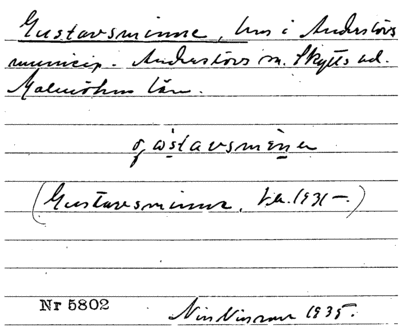 Gustavsminne, hus i Anderslövs
municip. Anderslövs sn. Skytts hd.
Malmöhus län.
gøstavsmenə
(Gustavsminne, t.k. 1931–.)
Nr 5802
Nils Nilsson 1935.